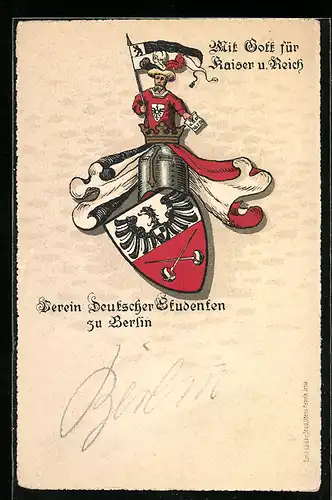 Mit Gott für
Kaiser u. Reich
Verein Deutscher Studenten
zu Berlin
Berlin